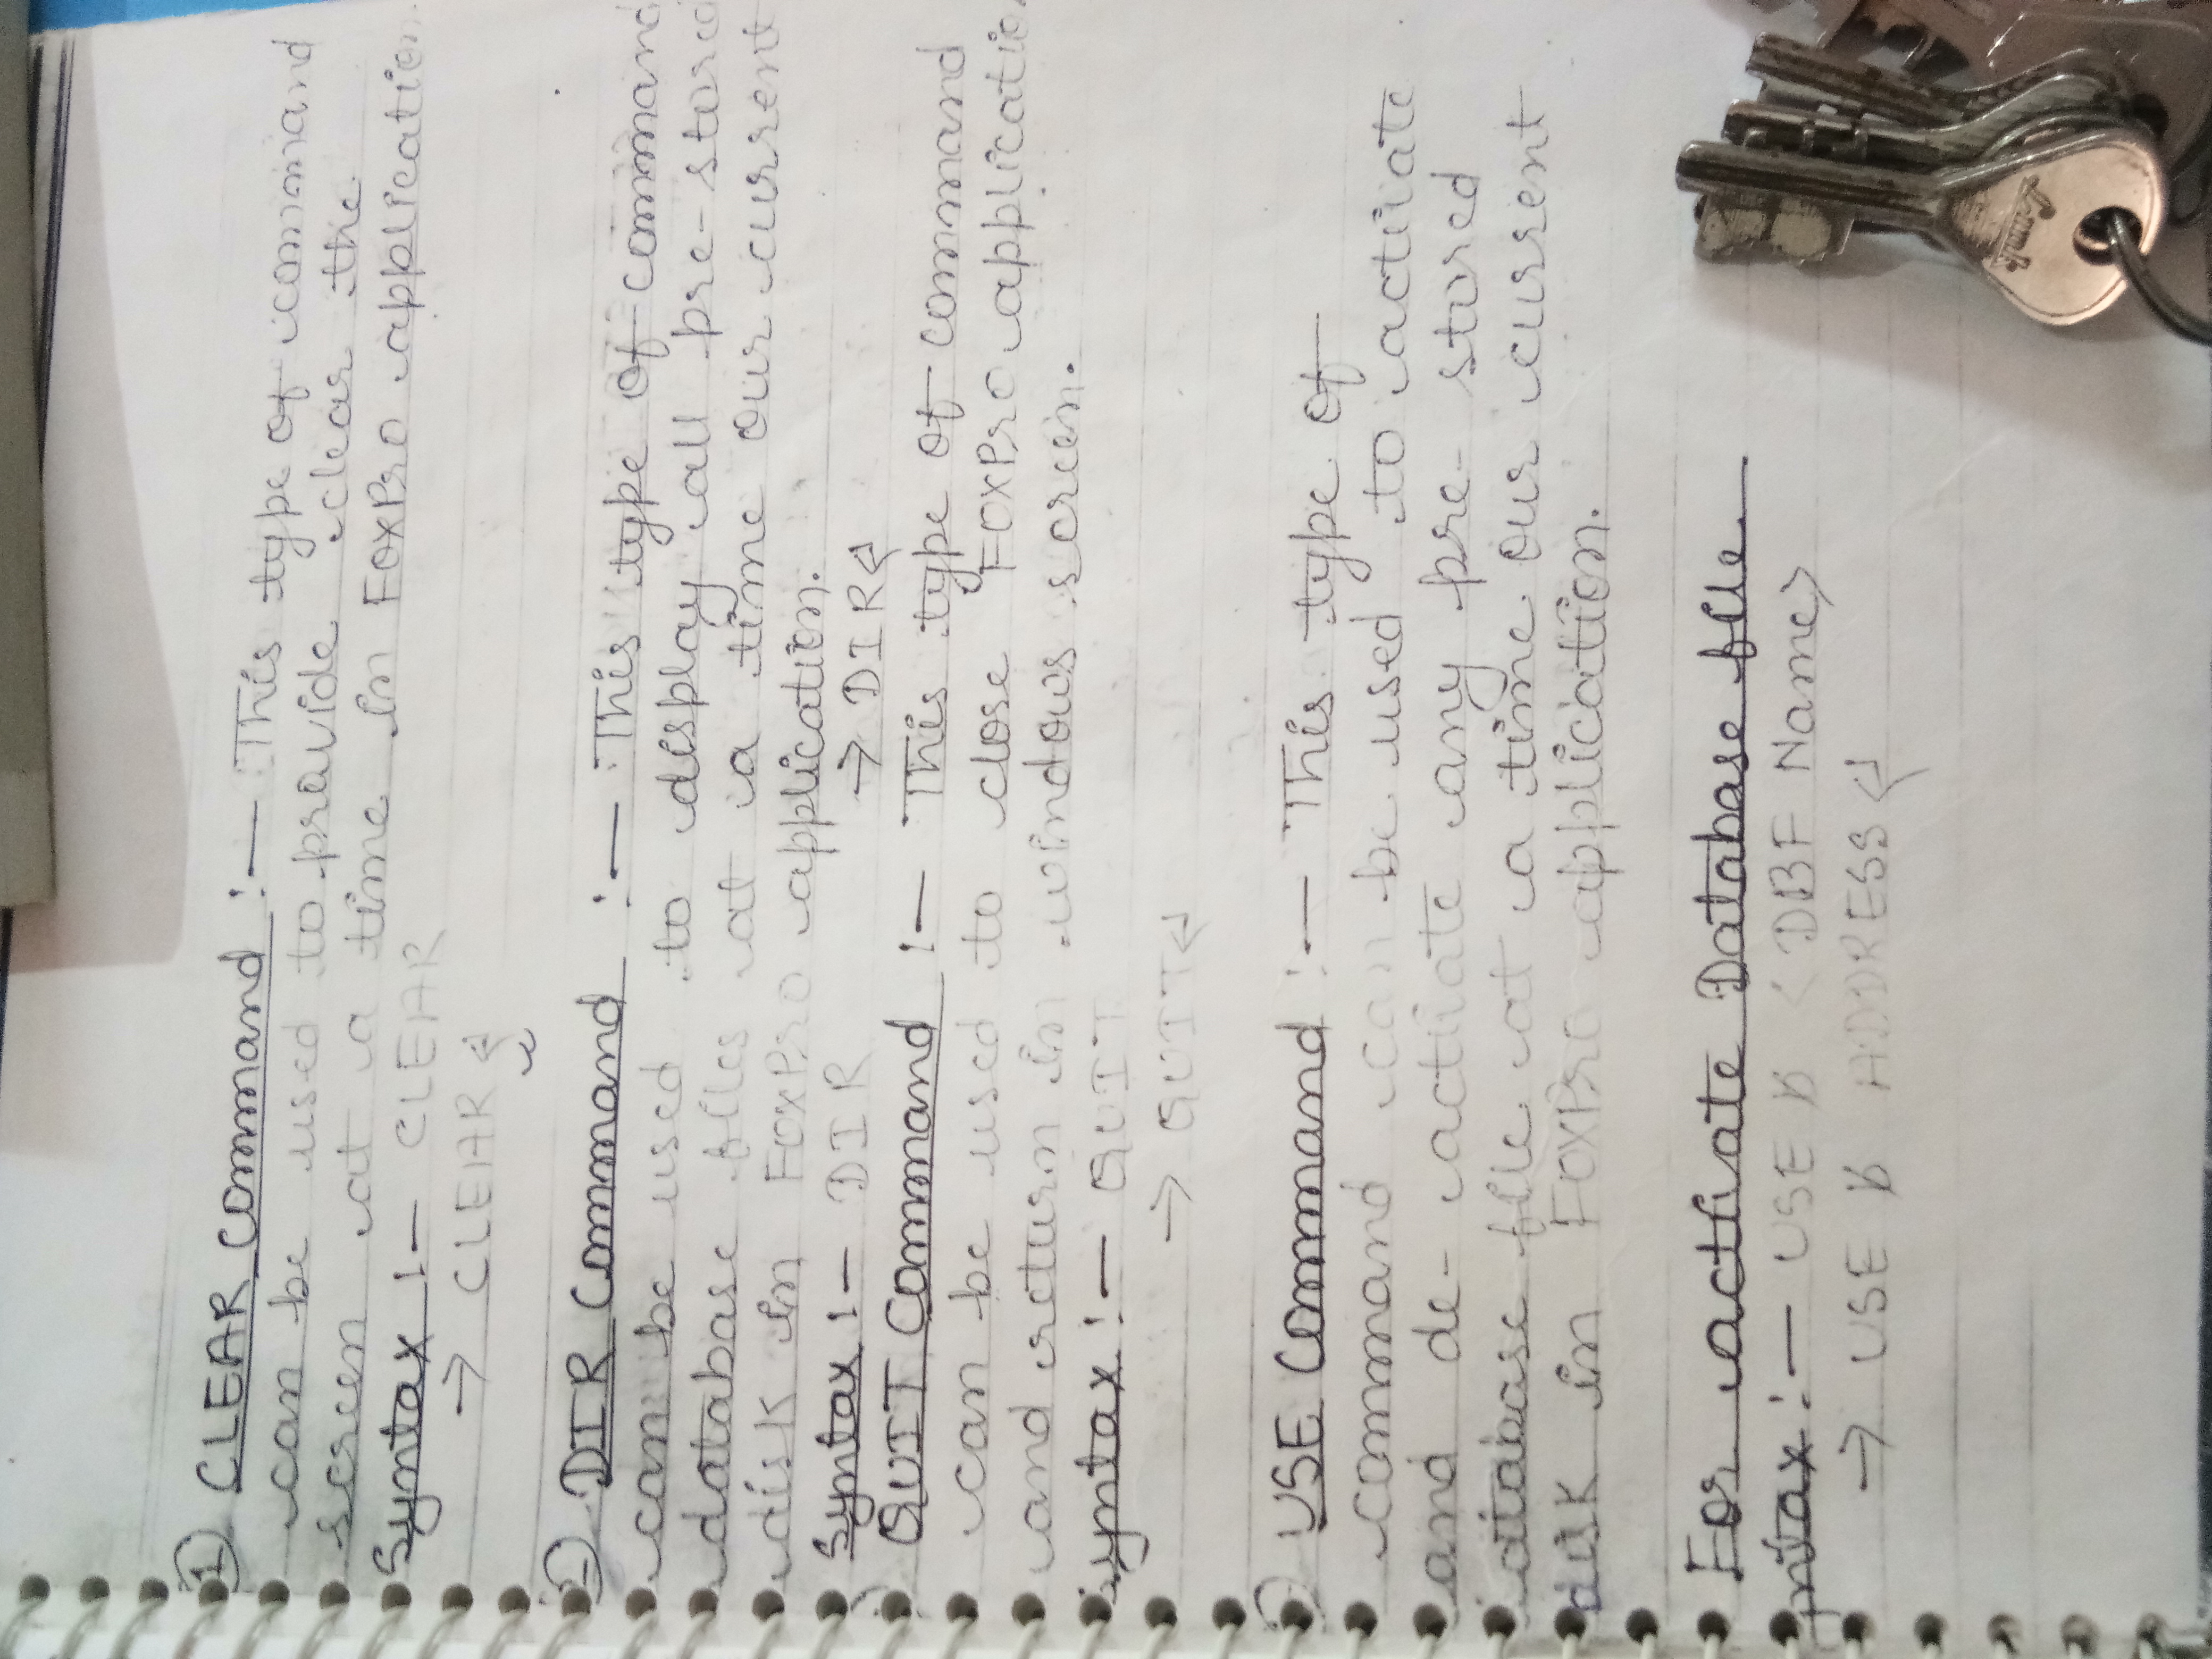 ① CLEAR Command :— This type of command
can be used to provide clear the
screen at a time in FoxPro application.
Syntax :— CLEAR
→ CLEAR ↵
DIR Command :— This type of command
can be used to display all pre-stored
database files at a time our current
disk in FoxPro application.
Syntax :— DIR → DIR ↵
QUIT Command :— This type of command
can be used to close FoxPro application
and return in windows screen.
Syntax :— QUIT
→ QUIT ↵
USE Command :— This type of
command can be used to actiate
and de-actiate any pre-stored
database file at a time our current
disk in FoxPro application.
For actiate Database file
USE ƀ < DBF Name>
→ USE ƀ ADDRESS ↵